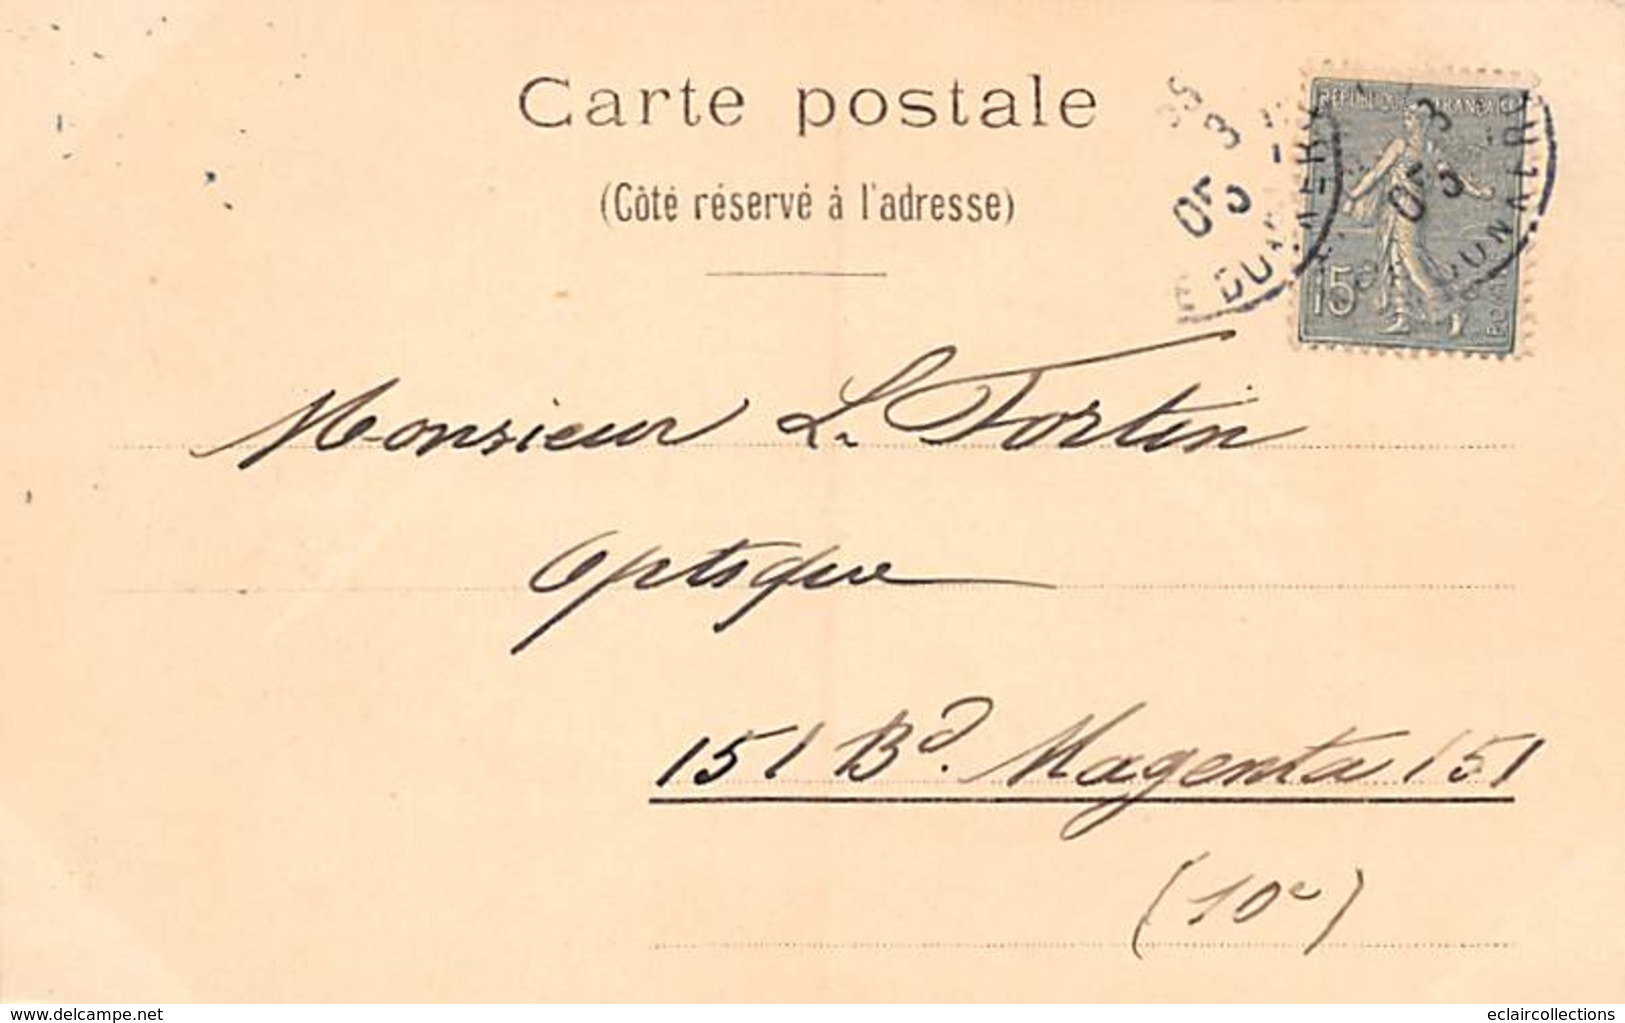 Carte postale
(Côté réservé à l'adresse)
RÉPUBLIQUE FRANÇAISE
15c
POSTES
Monsieur L. Fortin
Optique
151 Bd. Magenta 151
(10e)
www.delcampe.net
eclaircollections